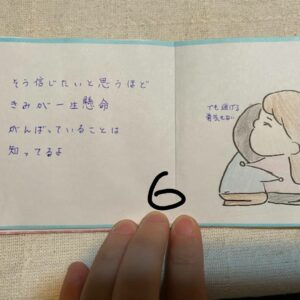 そう信じたいと思うほど
きみが一生懸命
がんばっていることは
知ってるよ
でも逃げる
勇気もない
6